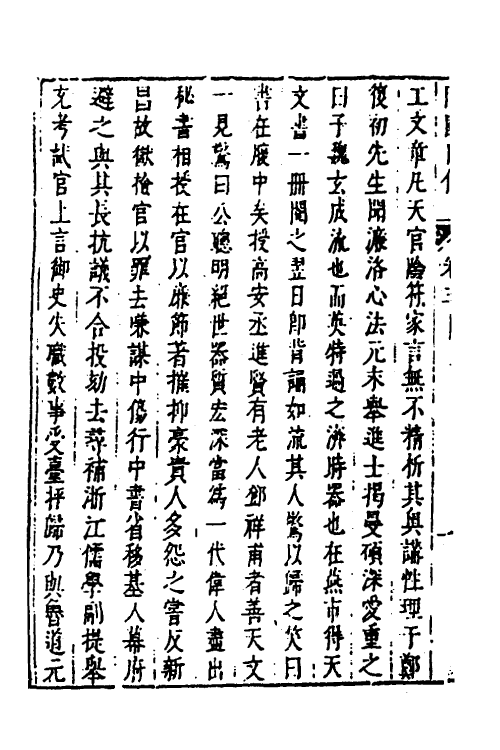 工文章凡天官陰符家言無不精析其與講性理于鄭
復初先生聞濂洛心法元末舉進士揭曼碩深愛重之
曰子魏玄成流也而英特過之濟時器也在燕市得天
文書一冊閱之翌日即背誦如流其人驚以歸之笑曰
書在腹中矣授高安丞進賢有老人鄧祥甫者善天文
一見驚曰公聰明絕世器質宏深當為一代偉人盡出
秘書相授在官以廉節著摧抑豪貴人多怨之嘗反新
昌故獄檢官以罪去衆謀中傷行中書省移基入幕府
避之與其長抗議不合投劾去尋補浙江儒學副提舉
充考試官上言御史失職數事受臺抨歸乃與魯道元